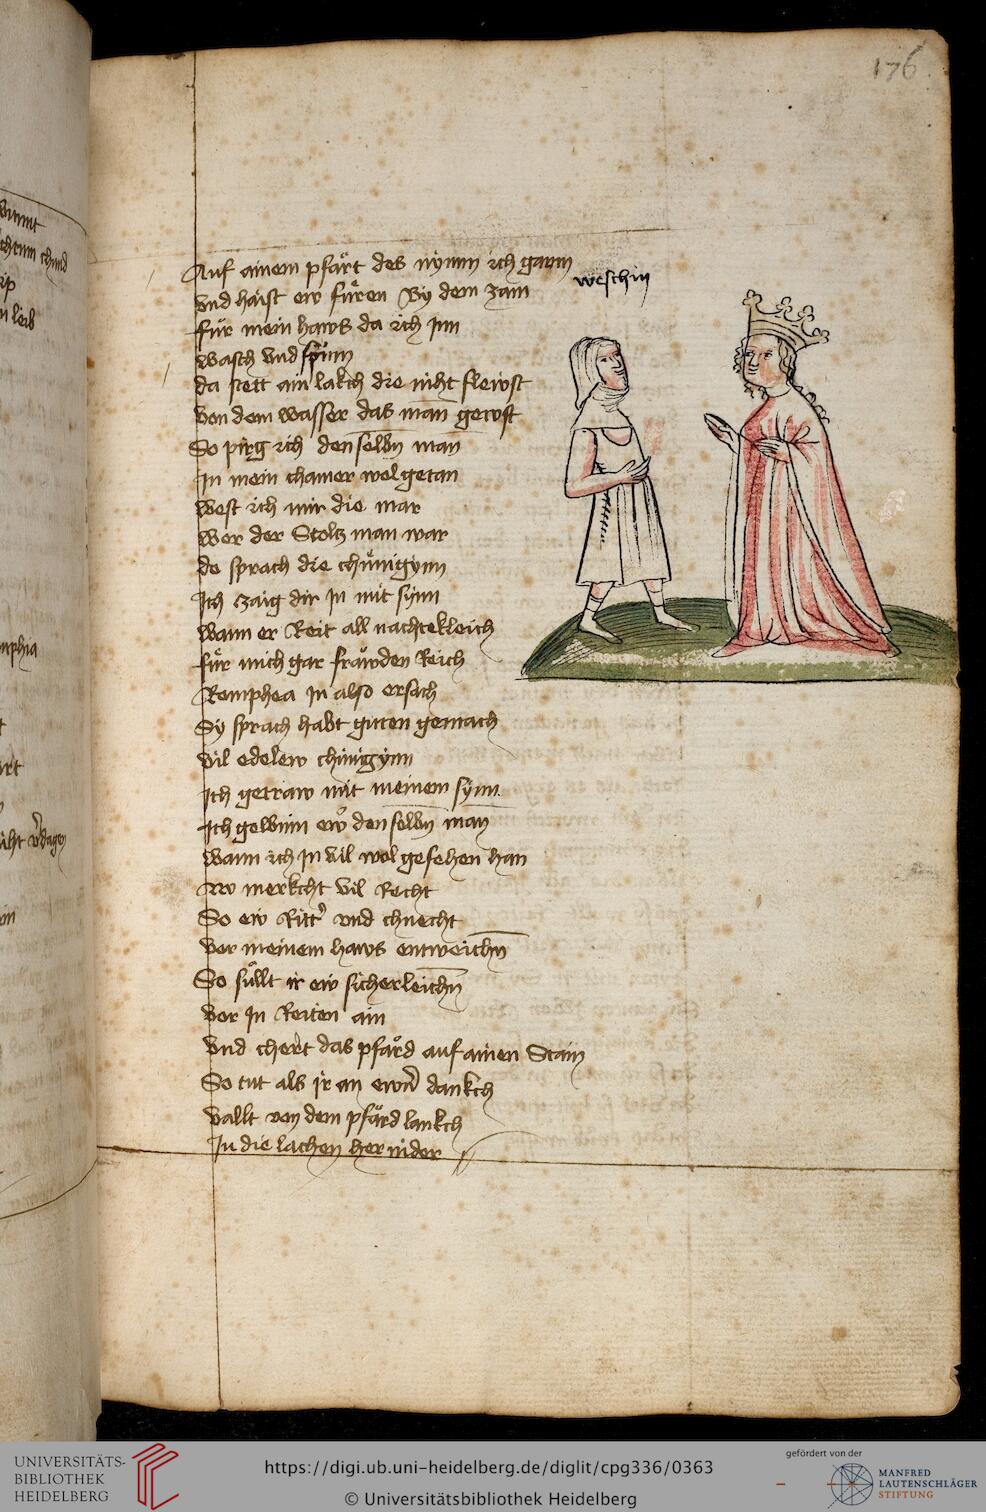 176
Auf ainem pfärt des nymm ich gaum
weschin
Vnd haist ew füren By dem zam
für mein haws da ich Inn
wasch vnd spinn
da stett ain lakch die niht flewst
Von dem wasser das man gewst
So pirg ich den selbn man
In mein chamer wol getan
West ich mir die mar
Wer der Stoltz man war
do sprach die chünigynn
Ich zaig dir In mit synn
Wann er Reit all nachtekleich
für mich gar fräwden Reich
Romphea In also ersach
Sy sprach habt guten gemach
Vil edelew chünigynn
Ich getraw mit meinem synn
Ich gewinn ew den selbn man
Wann ich In vil wol gesehen han
Nv merkcht vil Recht
So ew Ritt' vnd chnecht
Vor meinem haws entweichn
So süllt ir ew sicherleichn
Vor In Reiten ain
Vnd chert das pfärd auf ainen Stain
So tut als ir an ewrn dankch
Vallt von dem pfärd lankch
In die lachen her nider
UNIVERSITÄTS-
BIBLIOTHEK
HEIDELBERG
https://digi.ub.uni-heidelberg.de/diglit/cpg336/0363
© Universitätsbibliothek Heidelberg
gefördert von der
MANFRED
LAUTENSCHLÄGER
STIFTUNG